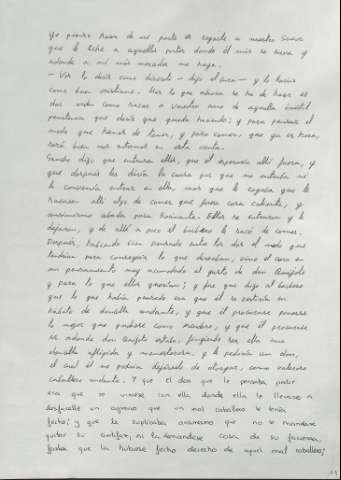 Yo pienso hacer de mi parte de rogarle a nuestro Señor
que le eche a aquellas partes donde él más se sirva y
adonde a mí más merced me haga.
– Vos lo decís como discreto – dijo el cura – y lo haréis
como buen cristiano. Mas lo que ahora se ha de hacer es
dar orden como sacar a vuestro amo de aquella inútil
penitencia que decís que queda haciendo; y para pensar el
modo que hemos de tener, y para comer, que ya es hora,
será bien nos entremos en esta venta.
Sancho dijo que entrasen ellos, que él esperaría allí fuera, y
que después les diría la causa por que no entraba ni
le convenía entrar en ella, mas que les rogaba que le
sacasen allí algo de comer que fuese cosa caliente, y
asimismo cebada para Rocinante. Ellos se entraron y le
dejaron, y de allí a poco el barbero le sacó de comer.
Después, habiendo bien pensado entre los dos el modo que
tendrían para conseguir lo que deseaban, vino el cura en
un pensamiento muy acomodado al gusto de don Quijote
y para lo que ellos querían; y fue que dijo al barbero
que lo que había pensado era que él se vestiría en
hábito de doncella andante, y que él procurase ponerse
lo mejor que pudiese como escudero, y que así irían
adonde don Quijote estaba, fingiendo ser ella una
doncella afligida y menesterosa, y le pediría un don,
el cual él no podría dejársele de otorgar, como valeroso
caballero andante. Y que el don que le pensaba pedir
era que se viniese con ella donde ella le llevase a
desfacelle un agravio que un mal caballero le tenía
fecho; y que le suplicaba ansimesmo que no la mandase
quitar su antifaz, ni la demandase cosa de su facienda,
fasta que la hubiese fecho derecho de aquel mal caballero;